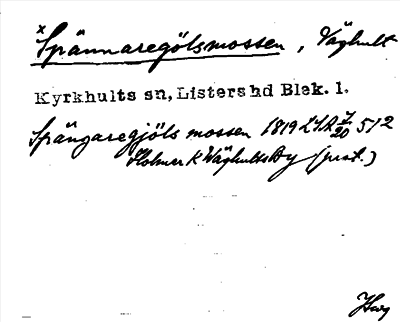 x Spännaregölsmossen, Väghult
Kyrkhults sn, Listers hd Blek. l.
Spångaregjöls mossen 1819 LSA J/20 512
Holmar K Wäghults By (prot.)